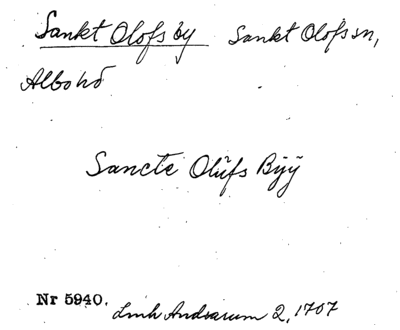 Sankt Olofs by Sankt Olofs sn,
Albo hd
Sancte Olŭfs Bÿÿ
Nr 5940. Lmh Andrarum 2, 1707